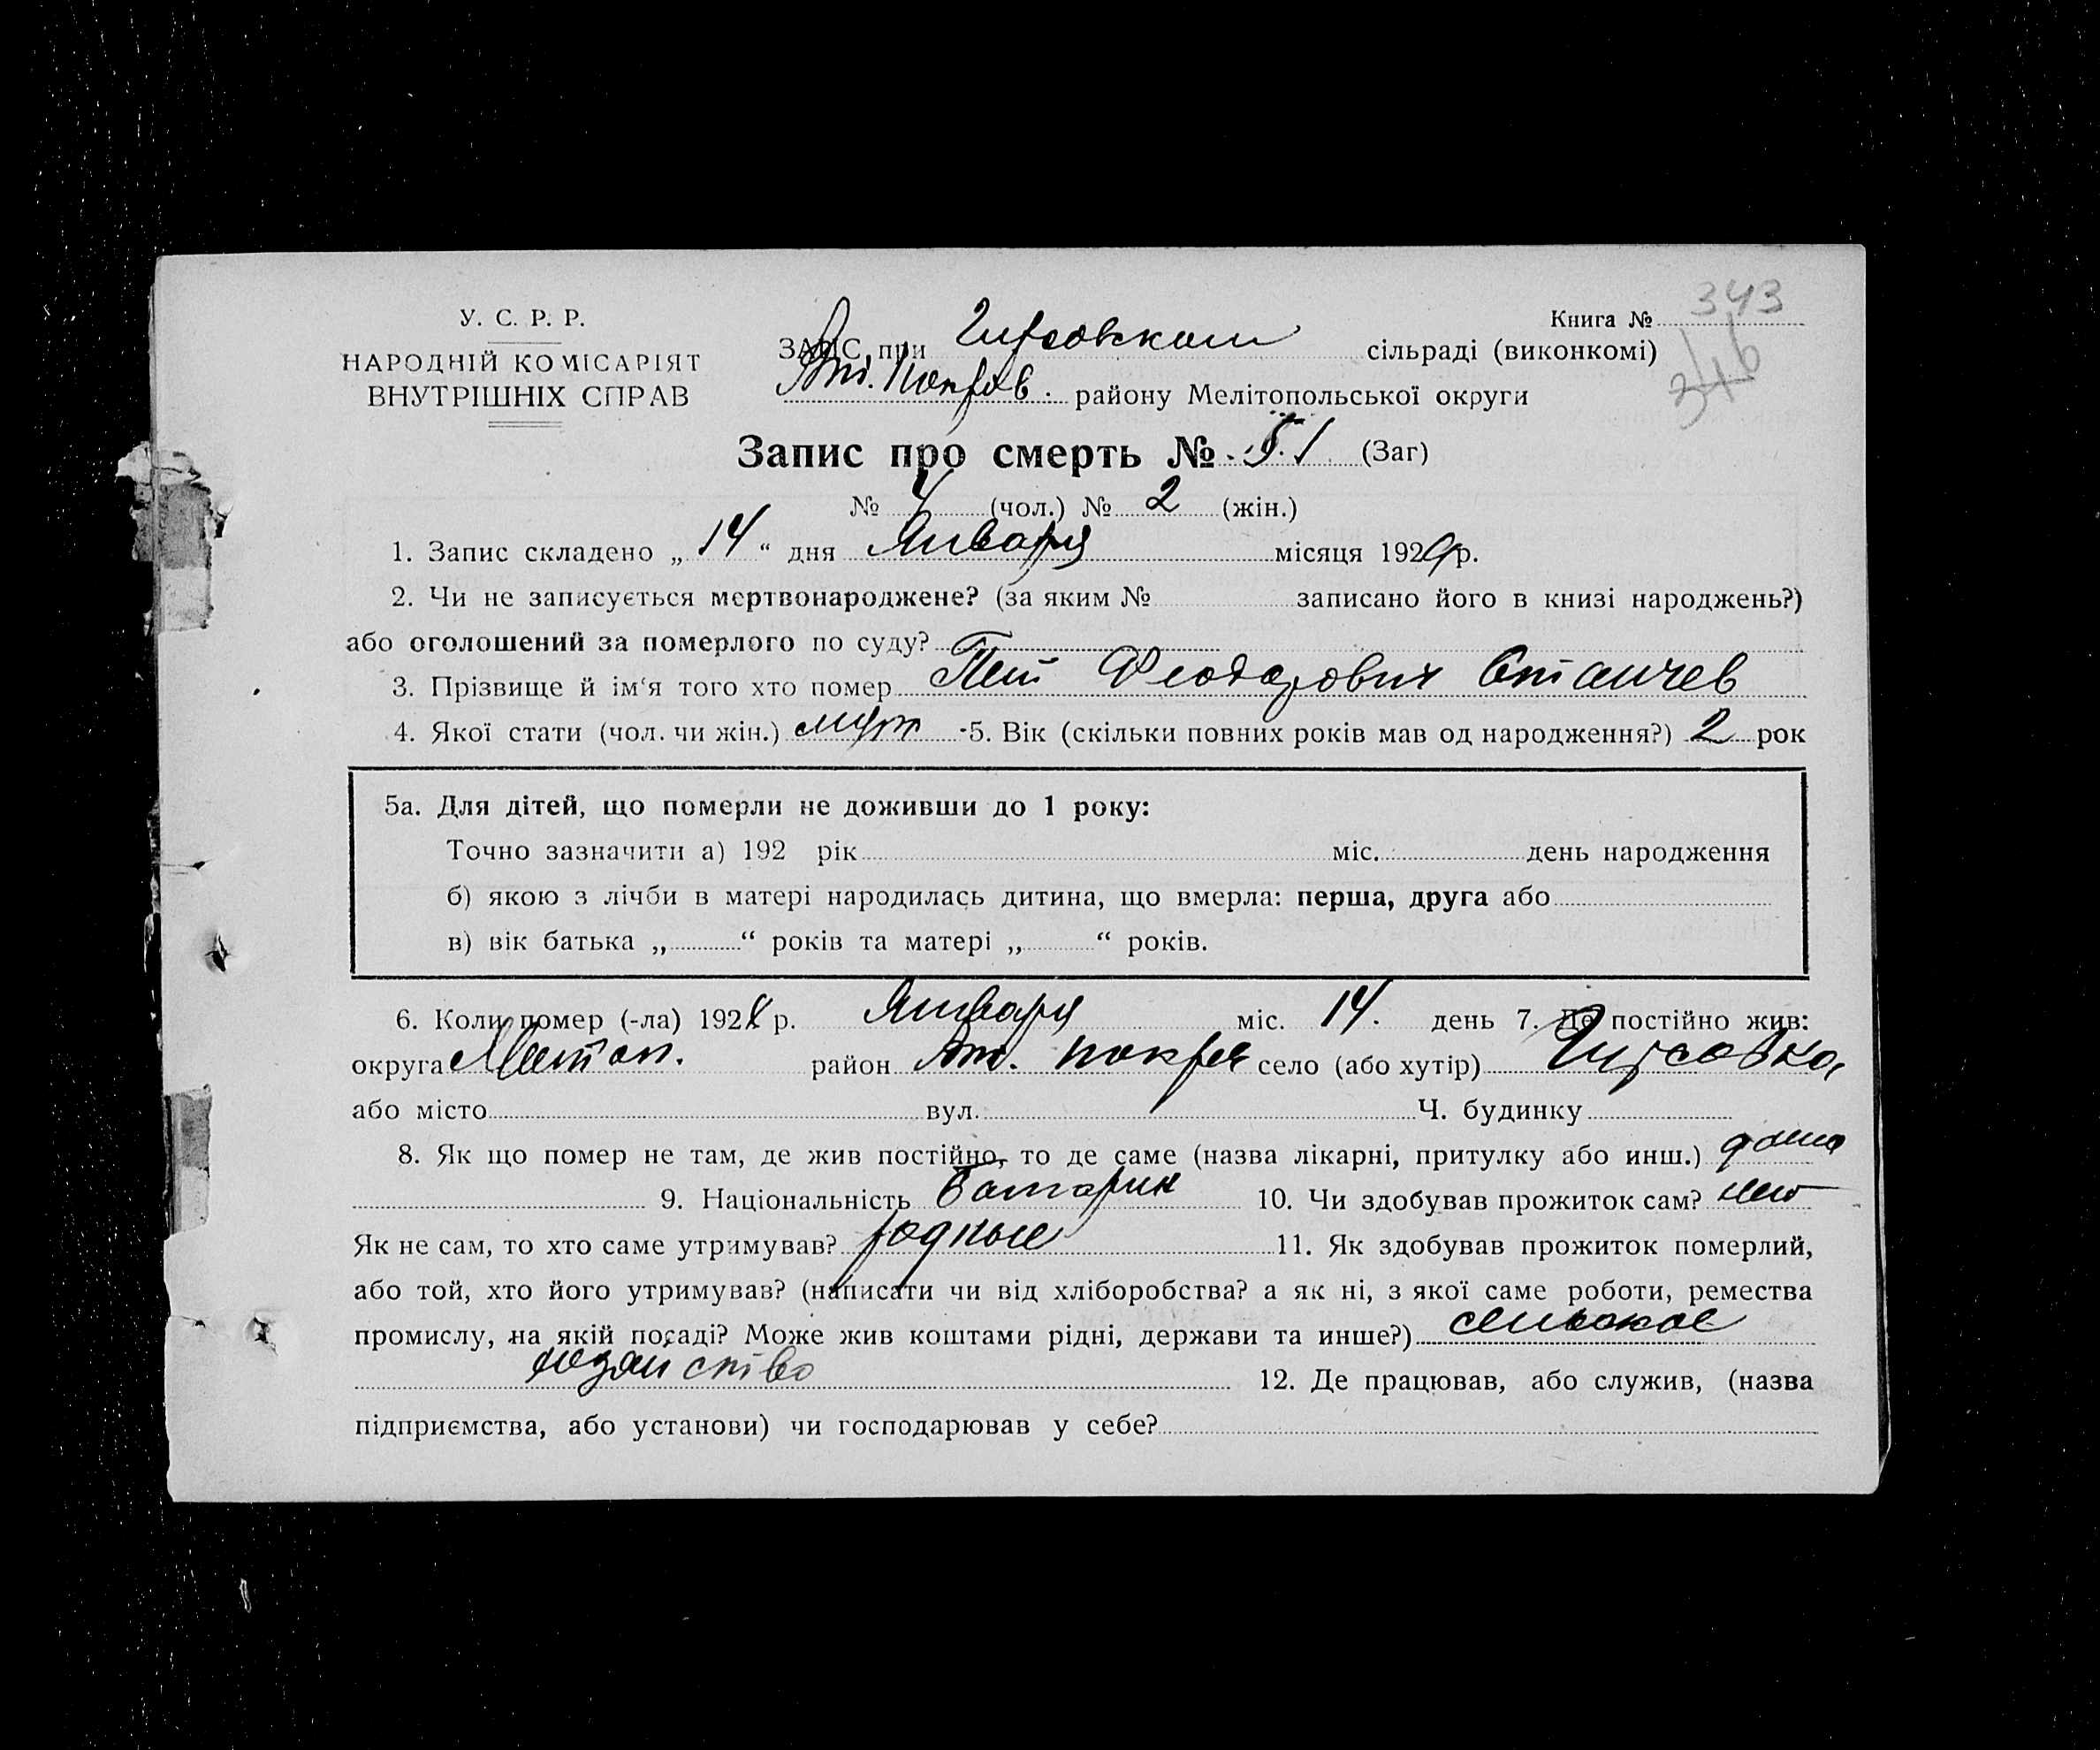 У. С. Р. Р.
НАРОДНІЙ КОМІСАРІЯТ
ВНУТРІШНІХ СПРАВ
Книга № 343
346
ЗАГС при Гирсовском сільраді (виконкомі)
Ант. Покров. району Мелітопольської округи
Запис про смерть № 5.1 (Заг)
№ (чол.) № 2 (жін.)
1. Запис складено „ 14 “ дня Января місяця 1929 р.
2. Чи не записується мертвонароджене? (за яким № записано його в книзі народжень?)
або оголошений за померлого по суду?
3. Прізвище й ім‘я того хто помер Феодорович
4. Якої стати (чол. чи жін.) муж 5. Вік (скільки повних років мав од народження?) 2 рок
5а. Для дітей, що померли не доживши до 1 року:
Точно зазначити а) 192 рік міс. день народження
б) якою з лічби в матері народилась дитина, що вмерла: перша, друга або
в) вік батька „ “ років та матері „ “ років.
6. Коли помер (-ла) 192 р. Января міс. 14. день 7. Де постійно жив:
округа район покров село (або хутір) Гирсовка
або місто вул. Ч. будинку
8. Як що помер не там, де жив постійно, то де саме (назва лікарні, притулку або инш.) дома
9. Національність Болгарин 10. Чи здобував прожиток сам? нет
Як не сам, то хто саме утримував? родные 11. Як здобував прожиток померлий,
або той, хто його утримував? (написати чи від хліборобства? а як ні, з якої саме роботи, ремества
промислу, на якій посаді? Може жив коштами рідні, держави та инше?) сельское
хозяйство 12. Де працював, або служив, (назва
підприємства, або установи) чи господарював у себе?